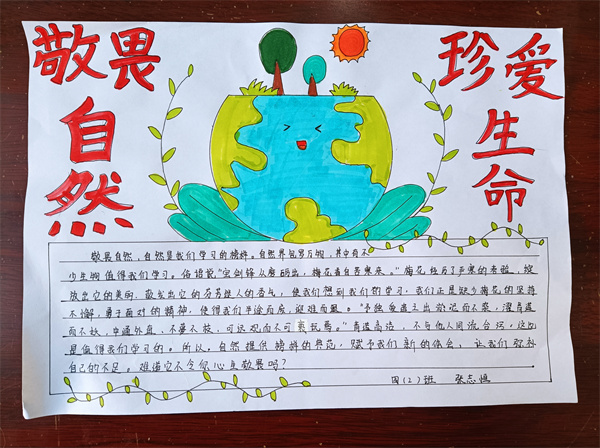 敬畏
自然
珍爱
生命
敬畏自然,自然是我们学习的榜样。自然界包罗万物,其中有不
少生物值得我们学习。俗话说"宝剑锋从磨砺出,梅花香自苦寒来。"梅花经历了严寒的考验,绽
放出它的美丽,散发出它的芬芳迷人的香气,使我们想到我们的学习,我们正是缺少梅花的坚持
不懈,勇于面对的精神,使得我们半途而废,迎难而退。"予独爱莲之出淤泥而不染,濯清涟
而不妖,中通外直,不蔓不枝,可远观而不可亵玩焉。"青莲高洁,不与他人同流合污,这也
是值得我们学习的。所以,自然提供榜样的典范,赋予我们新的体会,让我们弥补
自己的不足。难道它不令你心生敬畏吗?
四(2)班 张志